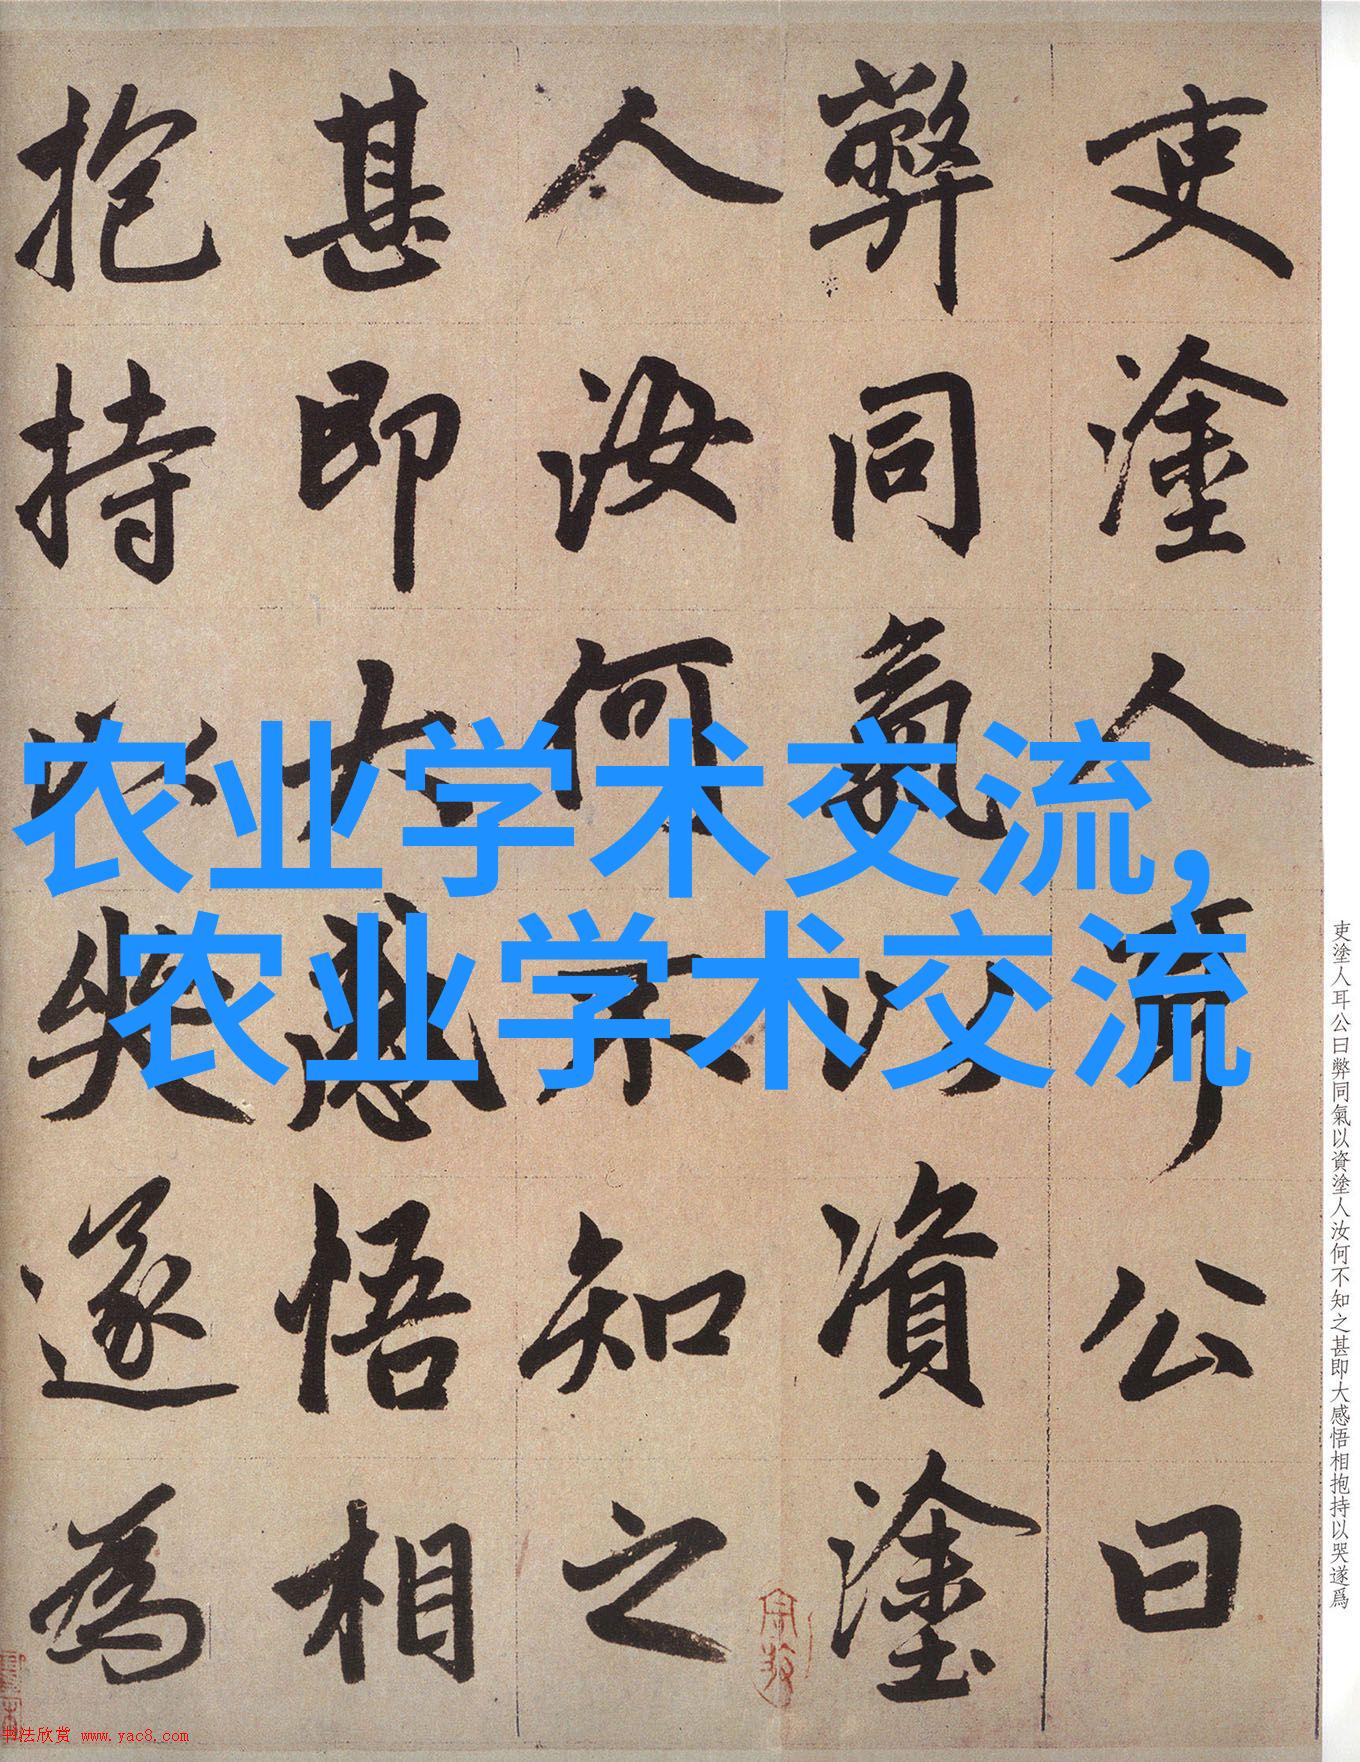 吏塗人耳公曰
弊同氣以資塗
人汝何不知之
甚即大感悟相
抱持以哭遂為
农业学术交流,
农业学术交流
吏塗人耳公曰弊同氣以資塗人汝何不知之甚即大感悟相抱持以哭遂爲
书法欣赏 www.yac8.com